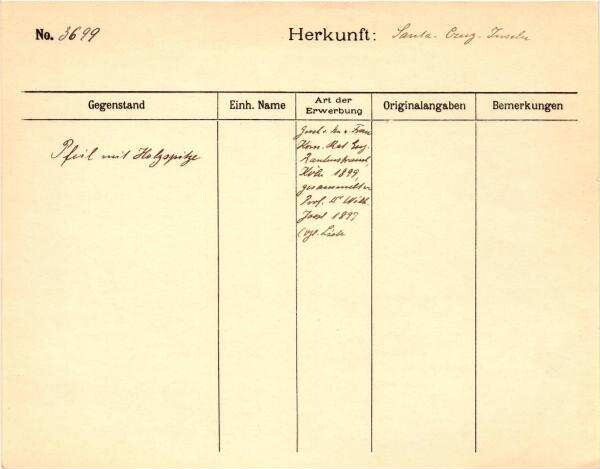 No. 3699
Herkunft: Santa. Cruz. Inseln
Gegenstand
Einh. Name
Art der Erwerbung
Originalangaben
Bemerkungen
Pfeil mit Holzspitze
Gesch. v. Frau
Kom. Rat Eug.
Rautenstrauch
Köln 1899,
gesammelt v
Prof. Dr Wilh.
Joest 1897
(vgl. Liste